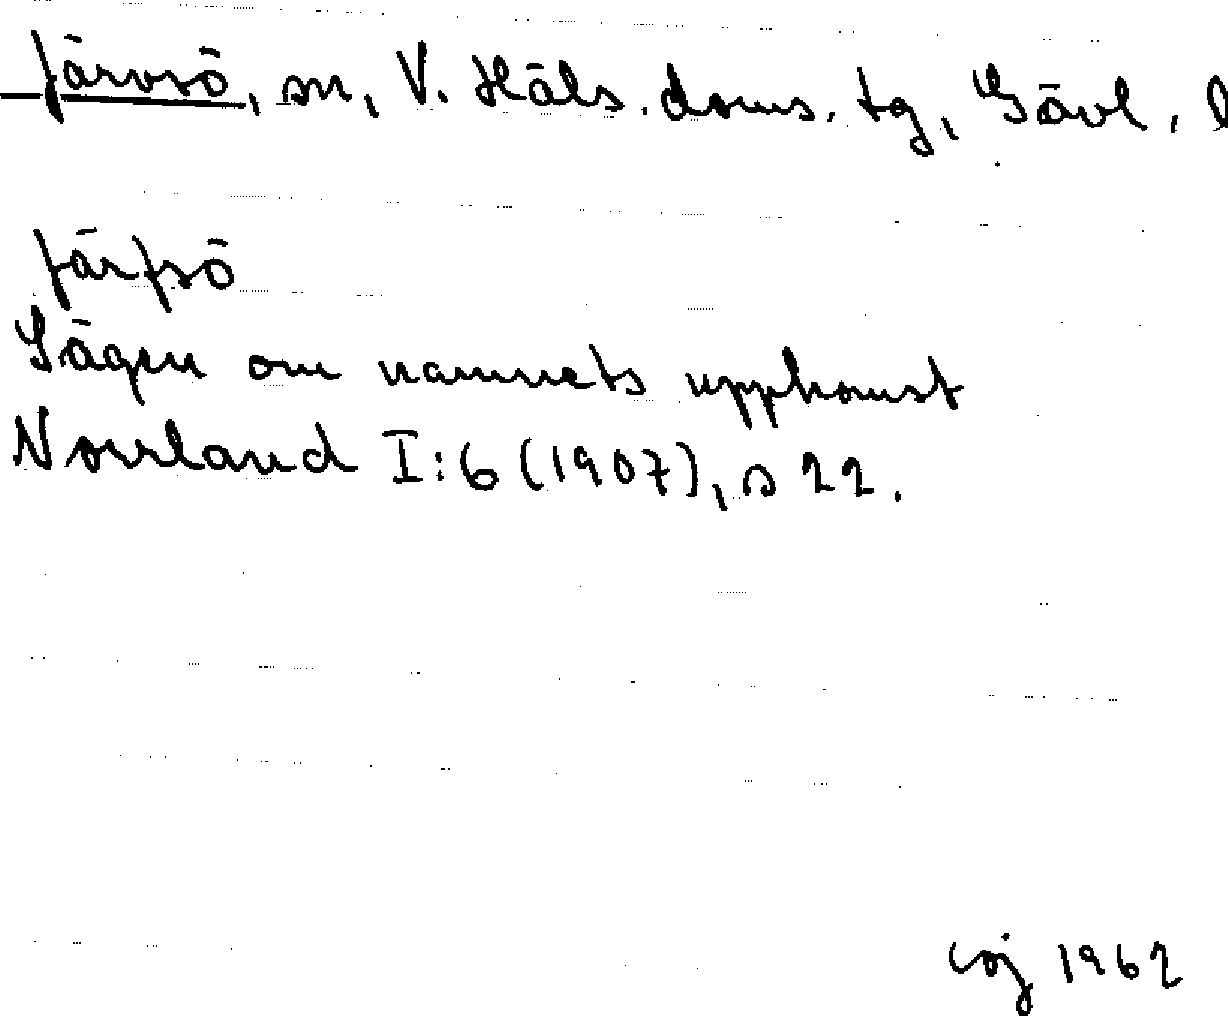 Järvsö, sn, V. Häls. doms. tg, Gävl. l
Järfsö
Sägen om namnets uppkomst
Norrland I:6 (1907), s 22.
1962